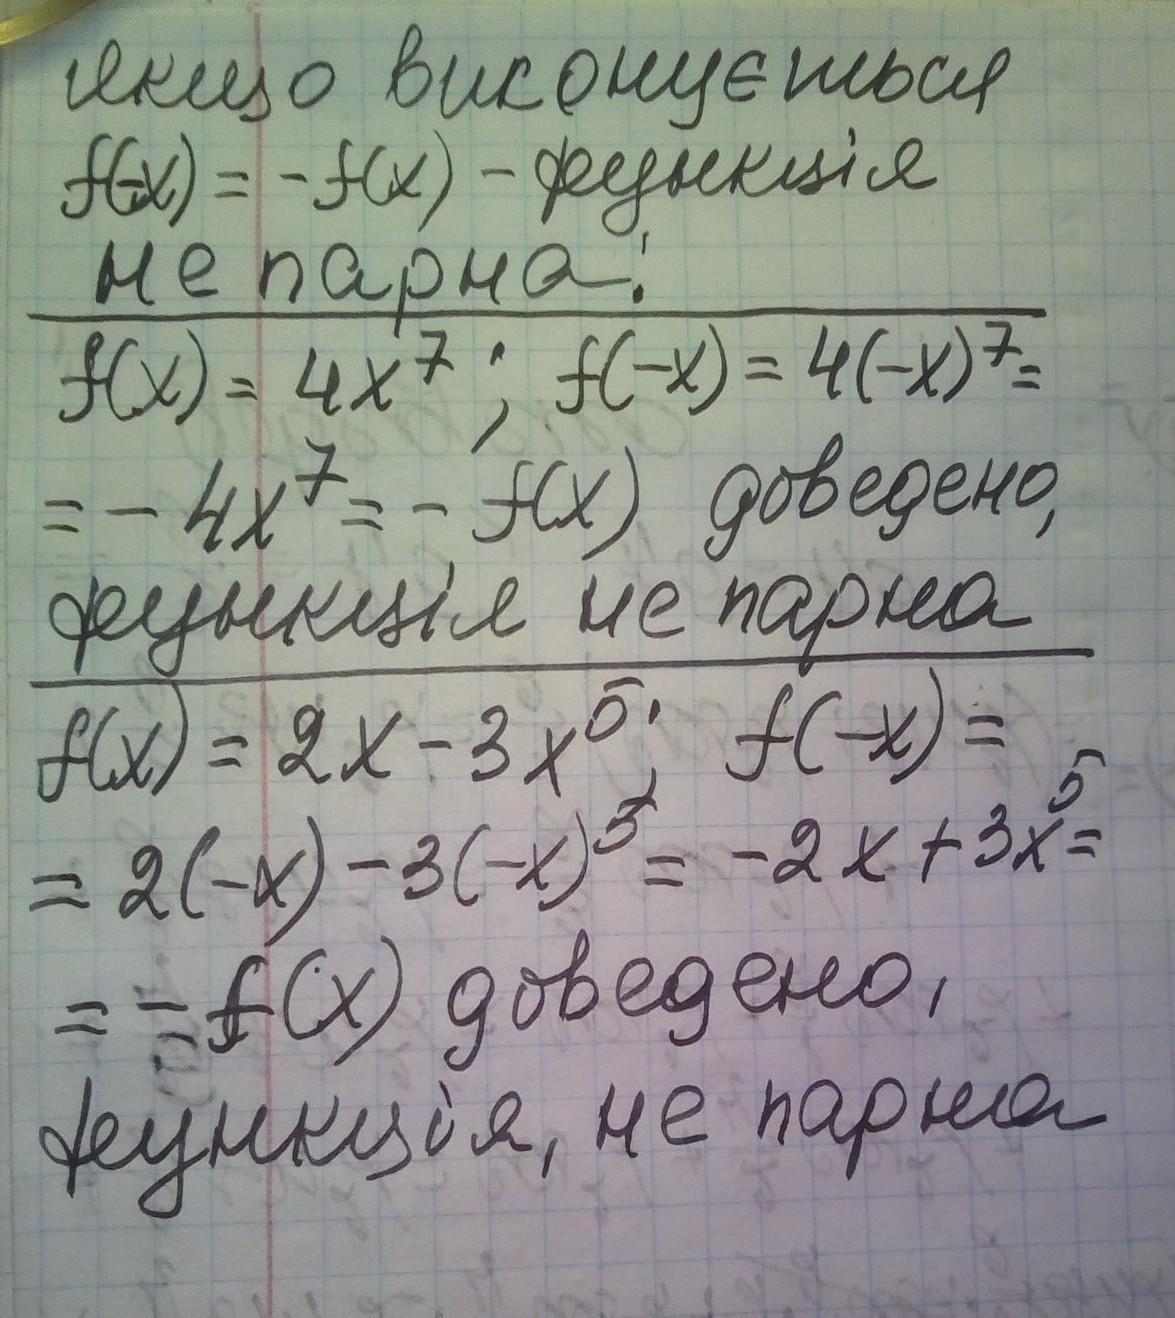 якщо виконується
f(-x) = -f(x) - функція
не парна!
f(x) = 4x⁷; f(-x) = 4(-x)⁷=
= - 4x⁷ = - f(x) доведено,
функція не парна
f(x) = 2x - 3x⁵; f(-x) =
= 2(-x) - 3(-x)⁵ = -2x + 3x⁵=
= - f(x) доведено,
функція, не парна